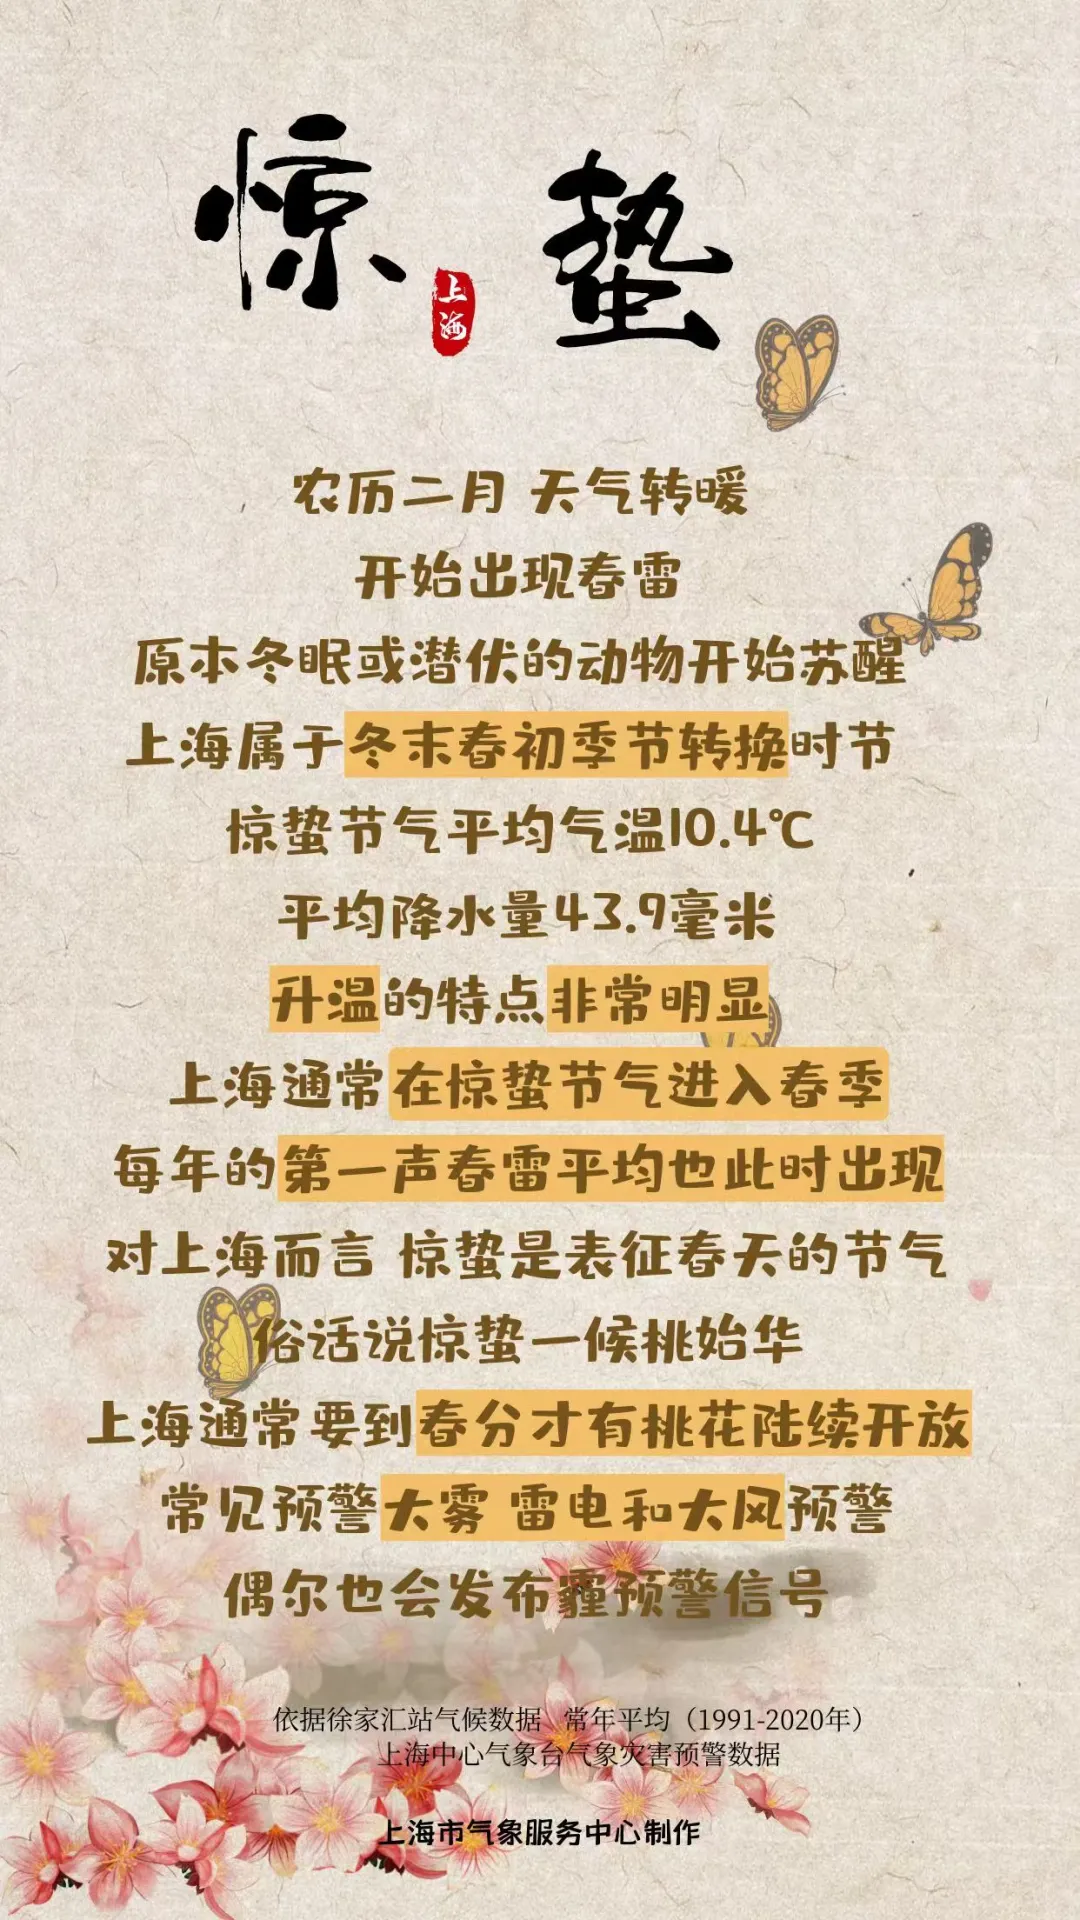 惊蛰
上海
农历二月 天气转暖
开始出现春雷
原本冬眠或潜伏的动物开始苏醒
上海属于冬末春初季节转换时节
惊蛰节气平均气温10.4℃
平均降水量43.9毫米
升温的特点非常明显
上海通常在惊蛰节气进入春季
每年的第一声春雷平均也此时出现
对上海而言 惊蛰是表征春天的节气
俗话说惊蛰一候桃始华
上海通常要到春分才有桃花陆续开放
常见预警大雾 雷电和大风预警
偶尔也会发布霾预警信号
依据徐家汇站气候数据 常年平均（1991-2020年）
上海中心气象台气象灾害预警数据
上海市气象服务中心制作